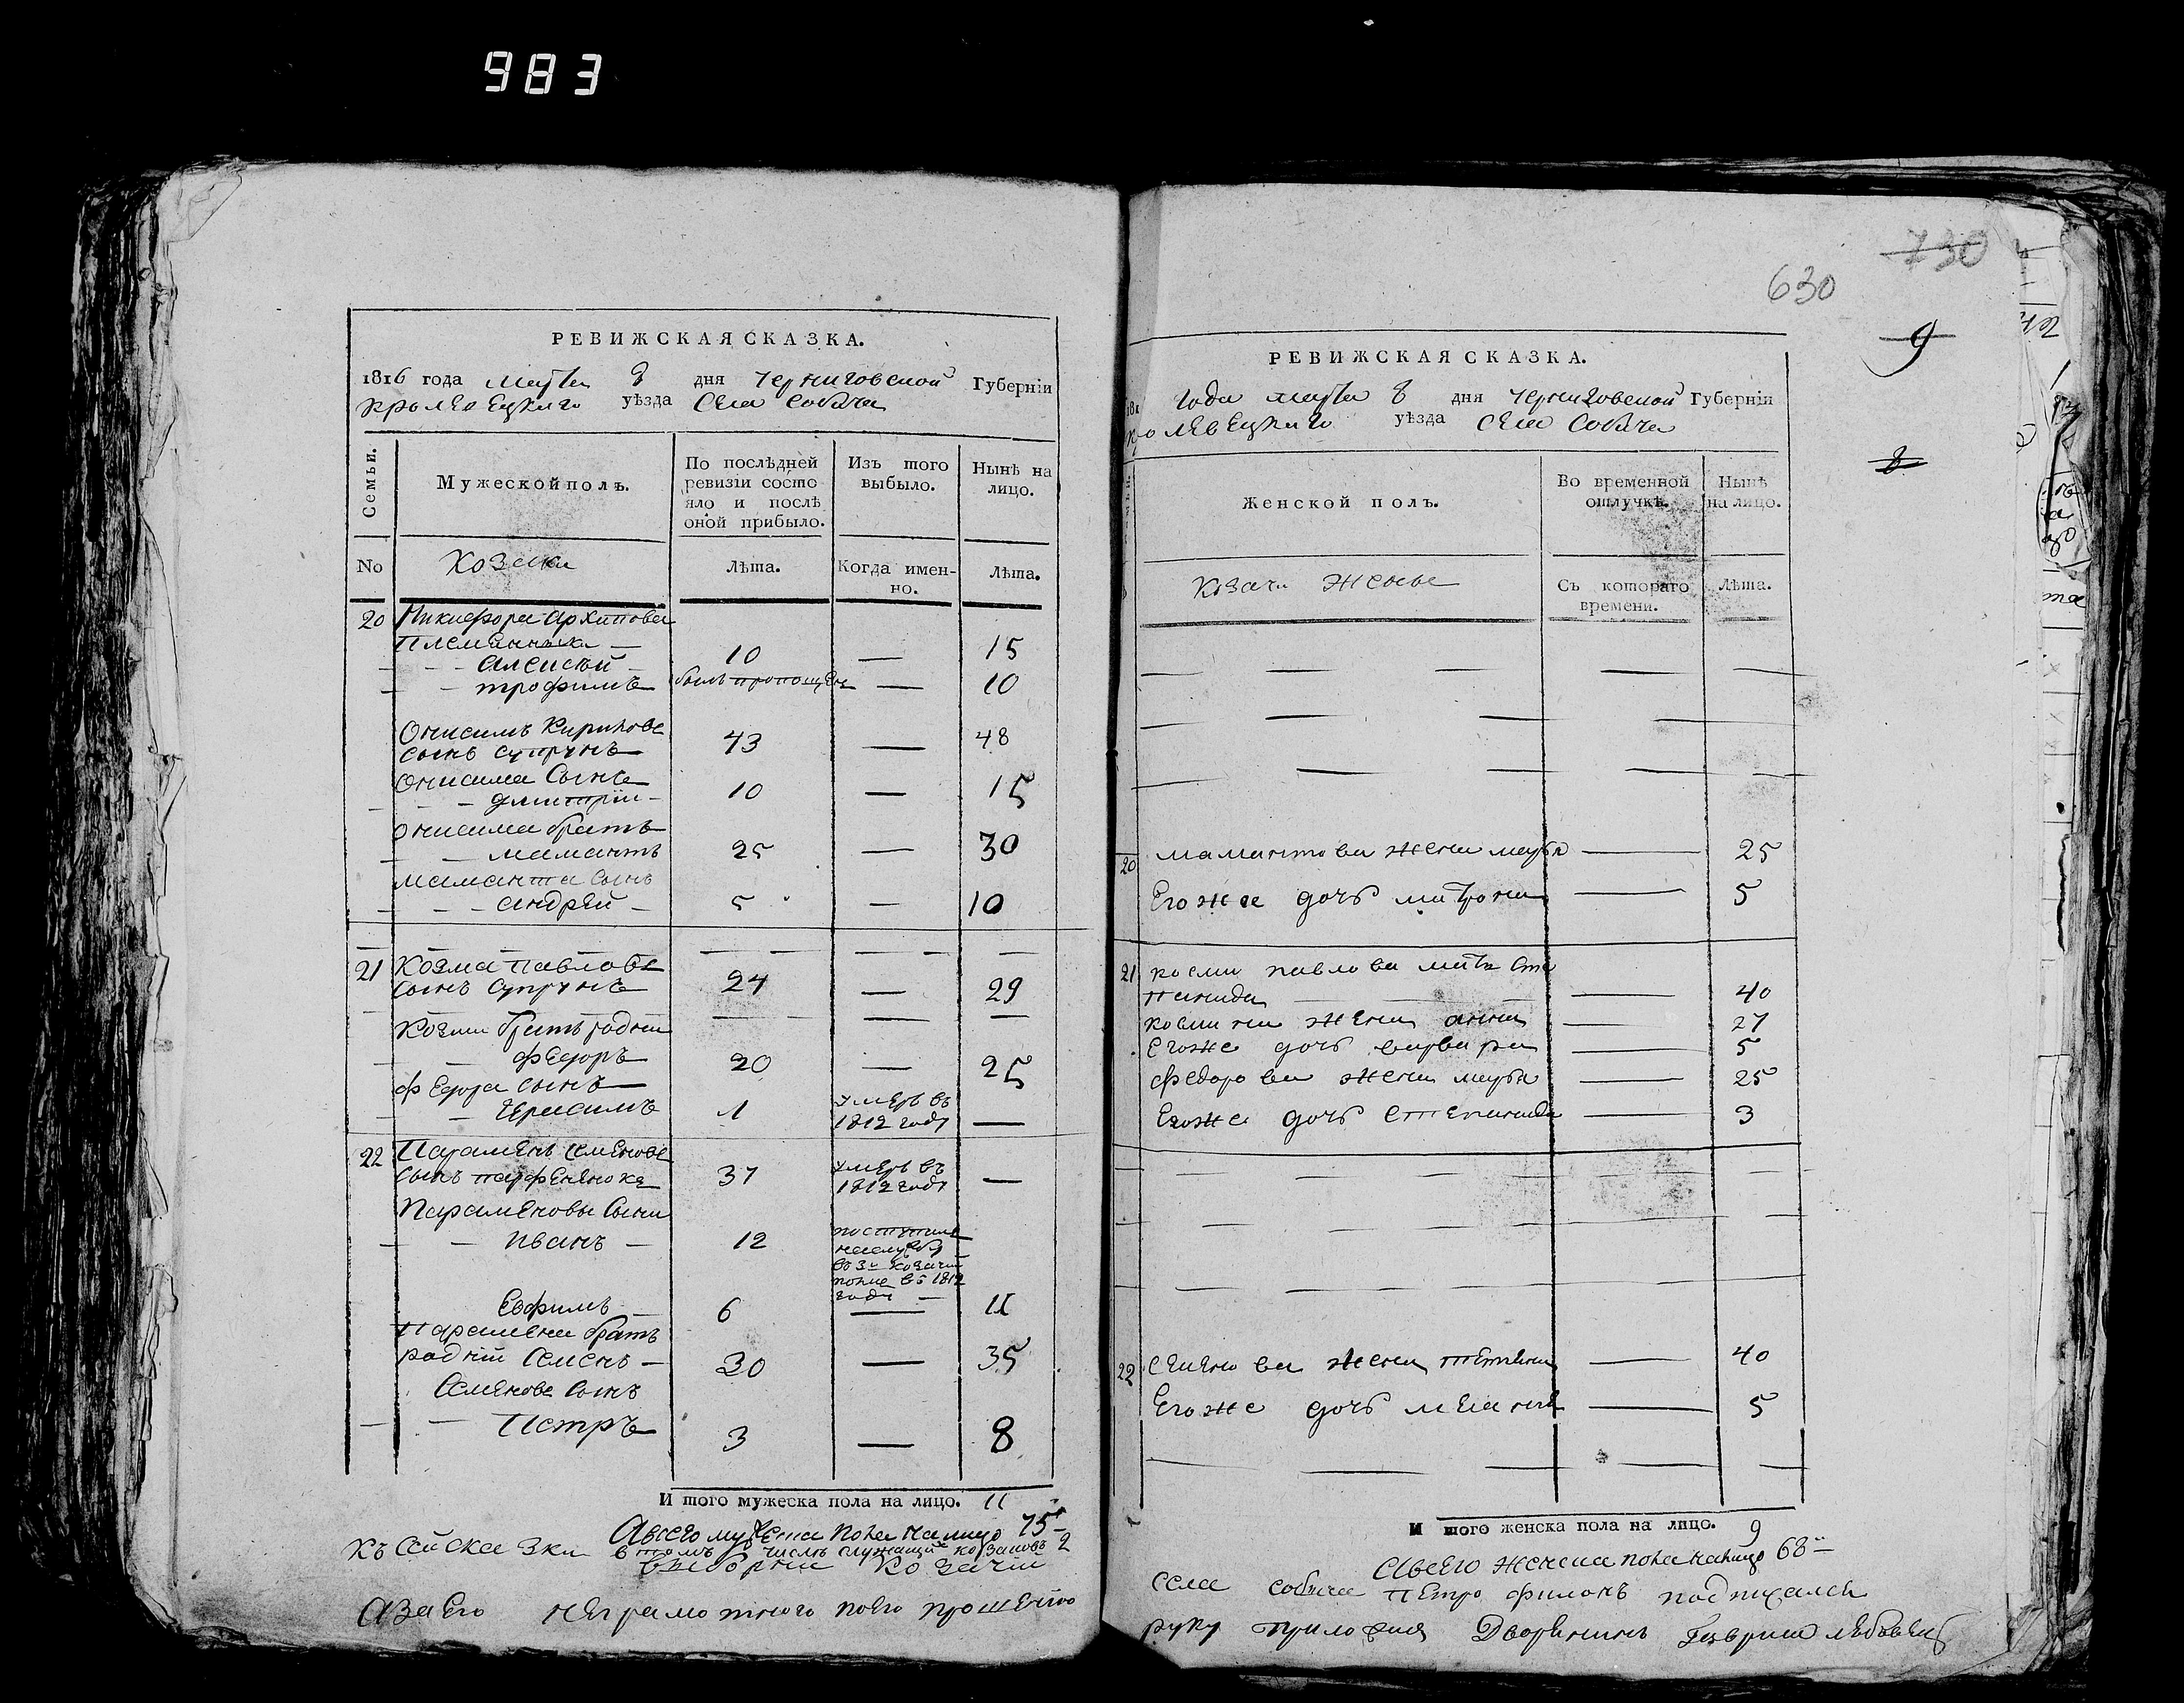 983
РЕВИЖСКАЯ СКАЗКА.
1816 года марта 8 дня Черниговской Губерніи
Кролевецкаго уѣзда Села Собича
Семьи.
Мужеской полъ.
По послѣдней ревизіи состояло и послѣ оной прибыло.
Изъ того выбыло.
Нынѣ на лицо.
No
Козаки
Лѣта.
Когда именно.
Лѣта.
20 Никифора Архипова
племянники
Алексѣй 10 — 15
трофимъ былъ пропощенъ — 10
Онисимъ Кириловъ
сынъ супрунъ 43 — 48
Онисима Сынъ
дмитрій 10 — 15
Онисима братъ
мамантъ 25 — 30
маманта сынъ
андрей 5 — 10
21 Козма павловъ
сынъ супрунъ 24 — 29
Козми братъ родни
федоръ 20 — 25
федора сынъ
Герасимъ 1 умеръ въ 1812 году —
22 Парамѣнъ семеновъ
сынъ парфененокъ 37 умеръ въ 1812 году —
Парамѣновы Сыни
иванъ 12 поступилъ
въ 3й козачій
полкъ въ 1812
году —
Евфимъ 6 — 11
парамена братъ
родній семенъ 30 — 35
Семеновъ сынъ
Петръ 3 — 8
И того мужеска пола на лицо. 11
Авсего мужеска пола налицо 75
в томъ числѣ служащихъ козаковъ 2
Къ сей сказки виборни Козачій
Азаего неграмотного поего прошенію
730
630
9
8
РЕВИЖСКАЯ СКАЗКА.
181 года марта 8 дня Черниговской Губерніи
кролевецкаго уѣзда села Собича
Женской полъ.
Во временной отлучкѣ.
Нынѣ на лицо.
козачи жены
Съ котораго времени.
Лѣта.
20 мамантова жена марья — 25
Егоже дочь матрона — 5
21 козми павлова мать сте
панида — 40
козмина жена анна — 27
Егоже дочь варвара — 5
федорова жена марья — 25
Егоже дочь степанида — 3
22 семенова жена татяна — 40
Егоже дочь меланія — 5
И того женска пола на лицо. 9
Авсего женска пола налицо 68
села собича петро филонъ подписался
руку приложилъ Дворянинъ